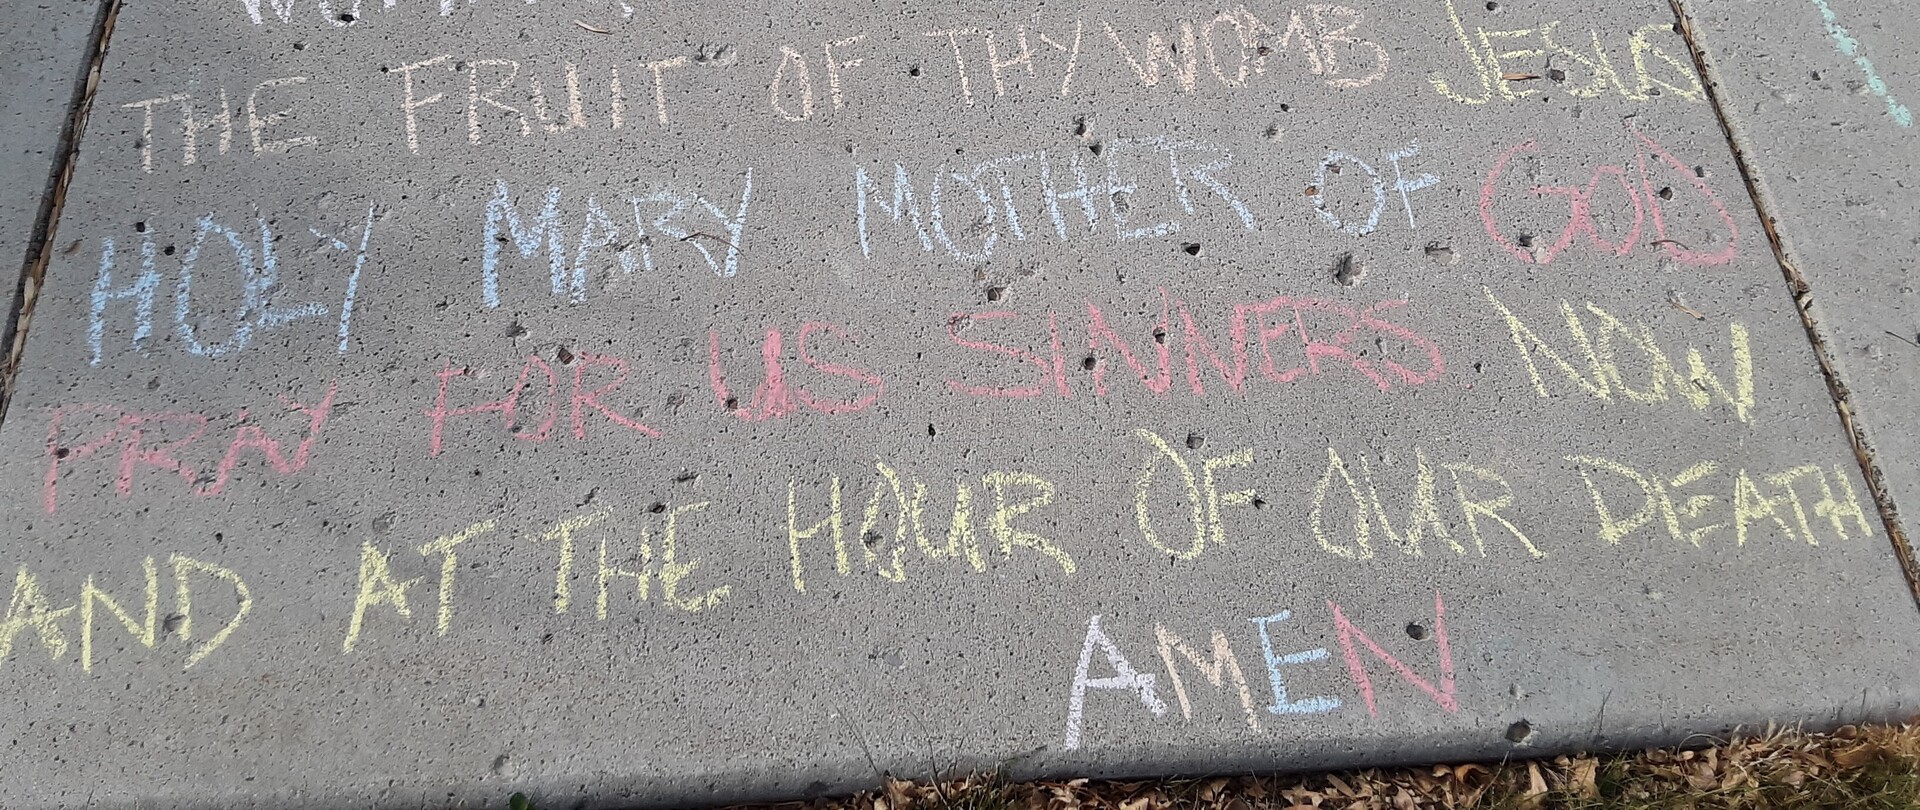 THE FRUIT OF THY WOMB JESUS
HOLY MARY MOTHER OF GOD
PRAY FOR US SINNERS NOW
AND AT THE HOUR OF OUR DEATH
AMEN